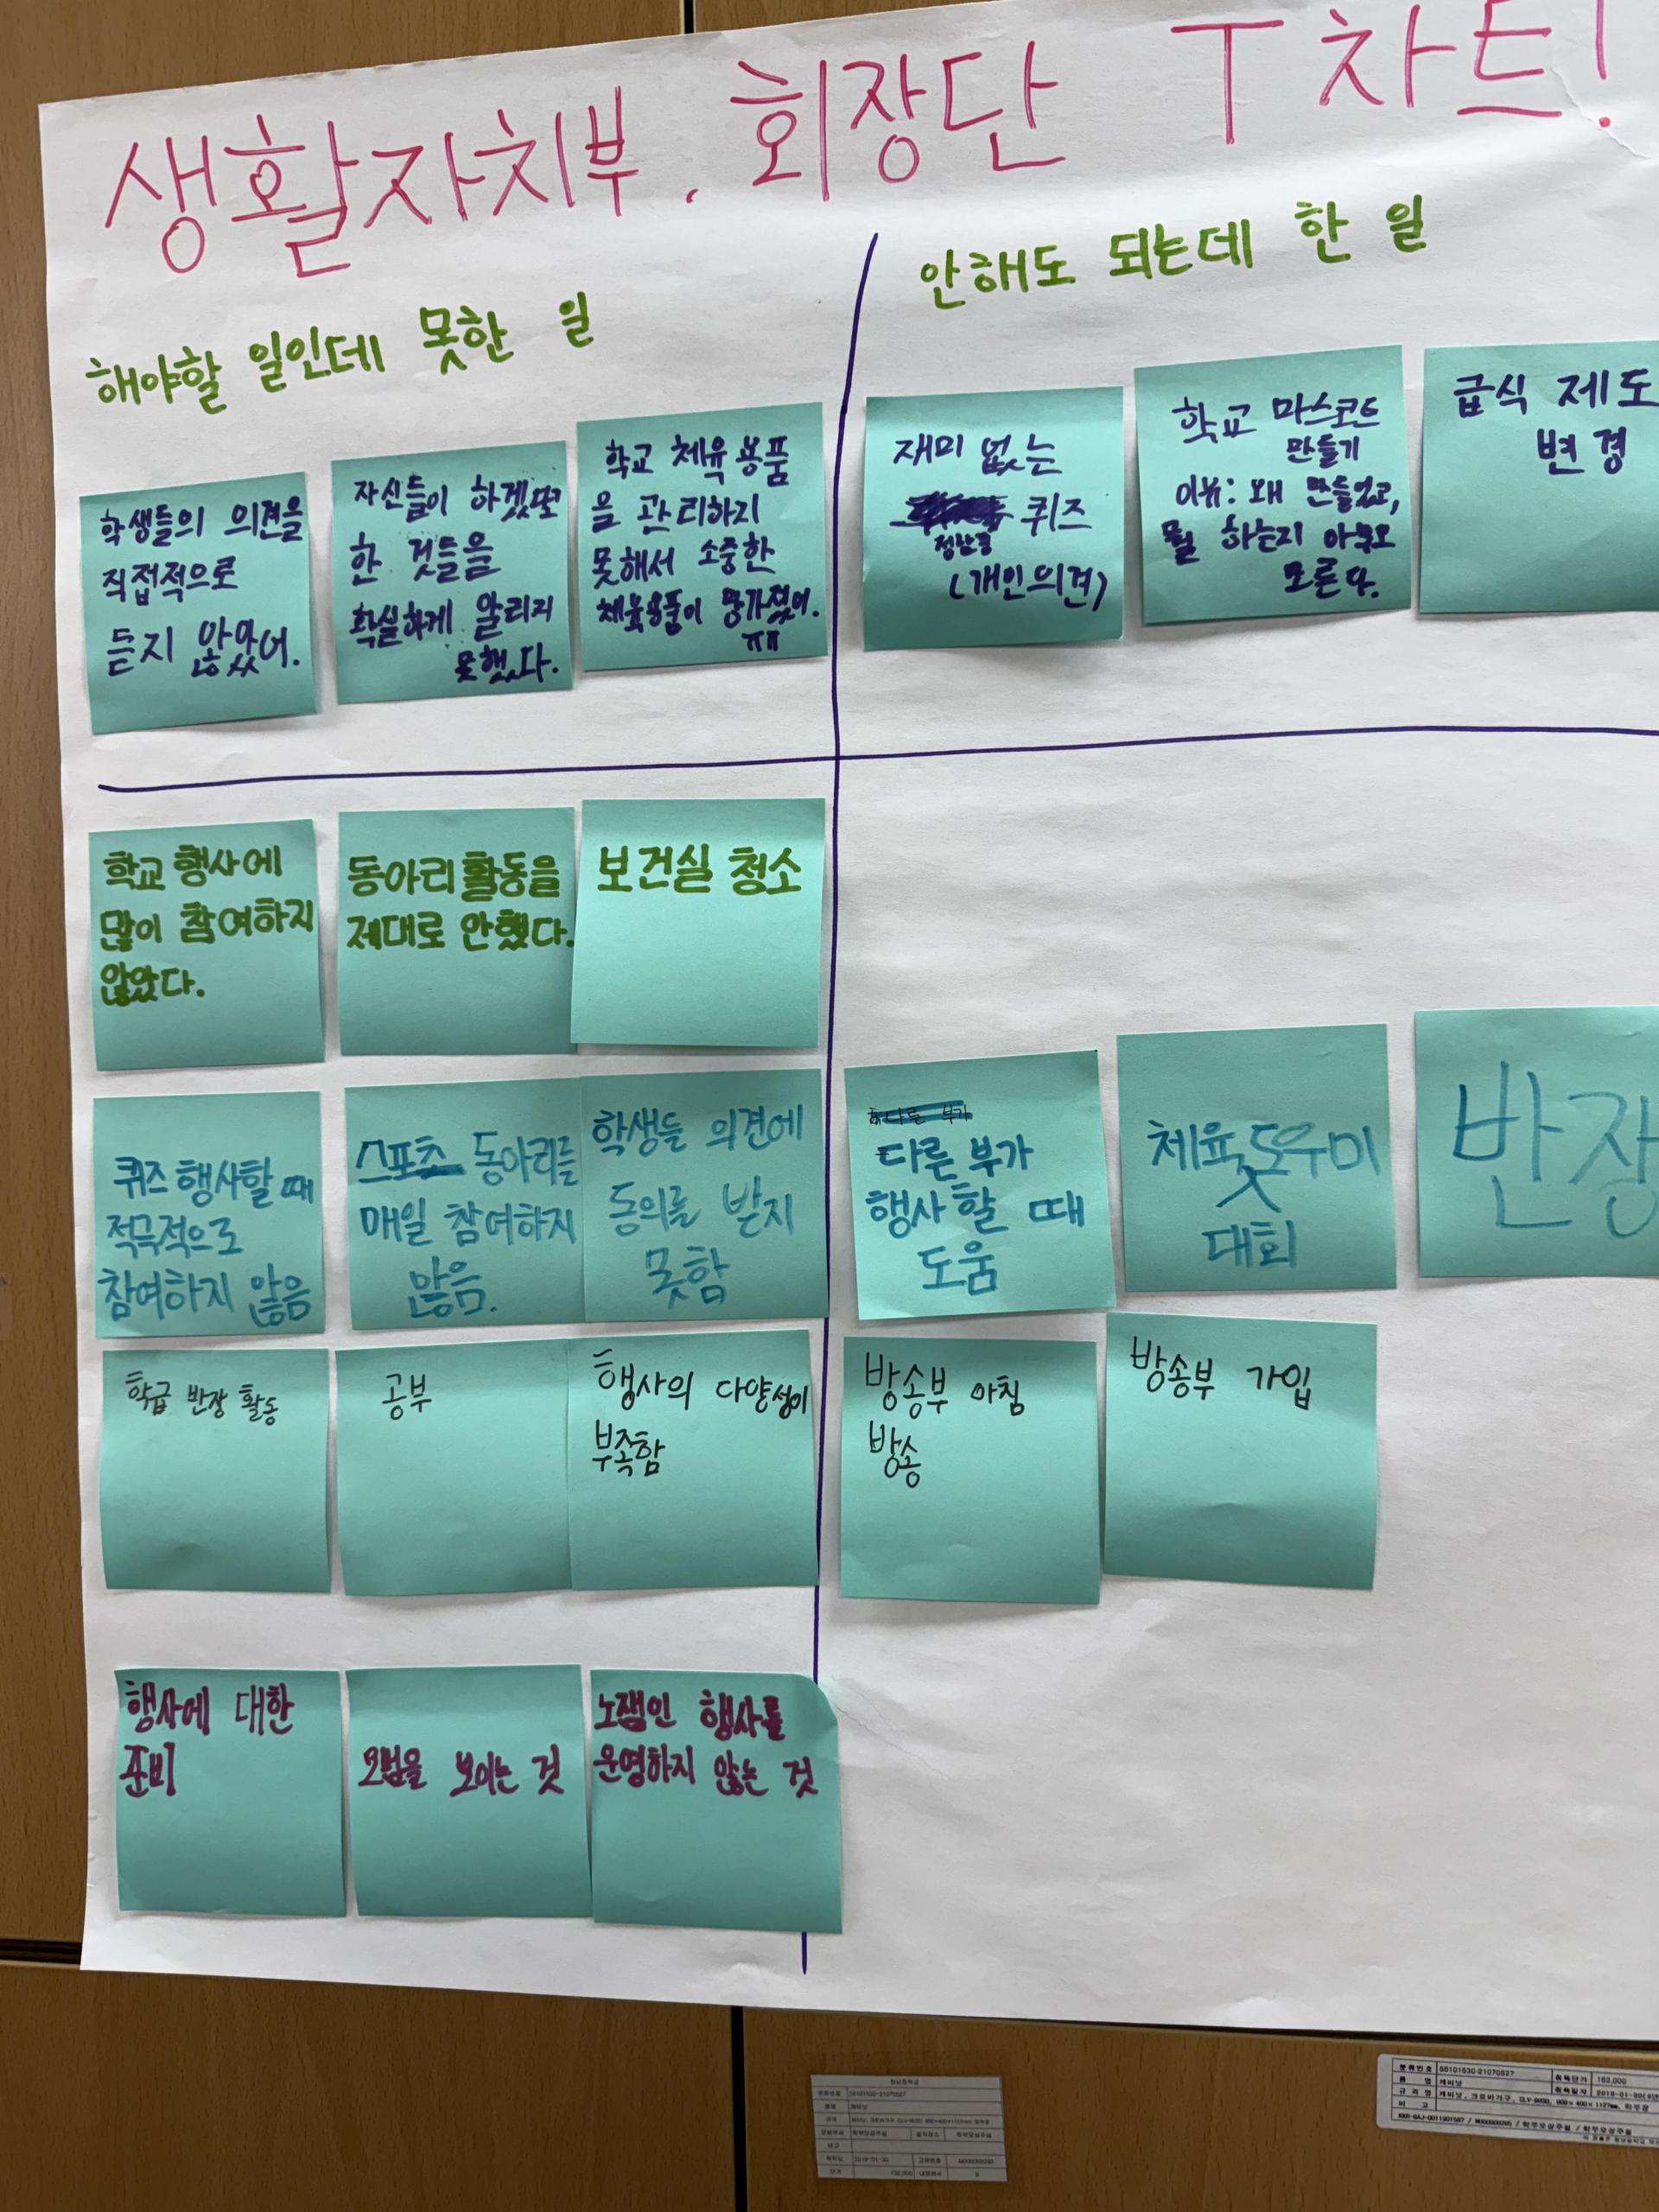 생활자치부. 회장단 T 차트!
해야할 일인데 못한 일
안해도 되는데 한 일
학생들의 의견을
직접적으로
듣지 않았어.
자신들이 하겠다고
한 것들을
확실하게 알리지
못했다.
학교 체육 용품
을 관리하지
못해서 소중한
체육용품이 망가졌어.
ㅠㅠ
재미 없는
퀴즈
(개인의견)
학교 마스코트
만들기
이유: 왜 만들었고,
뭘 하는지 아무도
모른다.
급식 제도
변경
학교 행사에
많이 참여하지
않았다.
동아리 활동을
제대로 안했다.
보건실 청소
퀴즈 행사할 때
적극적으로
참여하지 않음
스포츠 동아리를
매일 참여하지
않음.
학생들 의견에
동의를 받지
못함
다른 부가
다른 부가
행사 할 때
도움
체육 도우미
대회
반장
학급 반장 활동
공부
행사의 다양성이
부족함
방송부 아침
방송
방송부 가입
행사에 대한
준비
모범을 보이는 것
노잼인 행사를
운영하지 않는 것
분류번호 56101530-21070527 취득단가 152,000
품 명 캐비닛